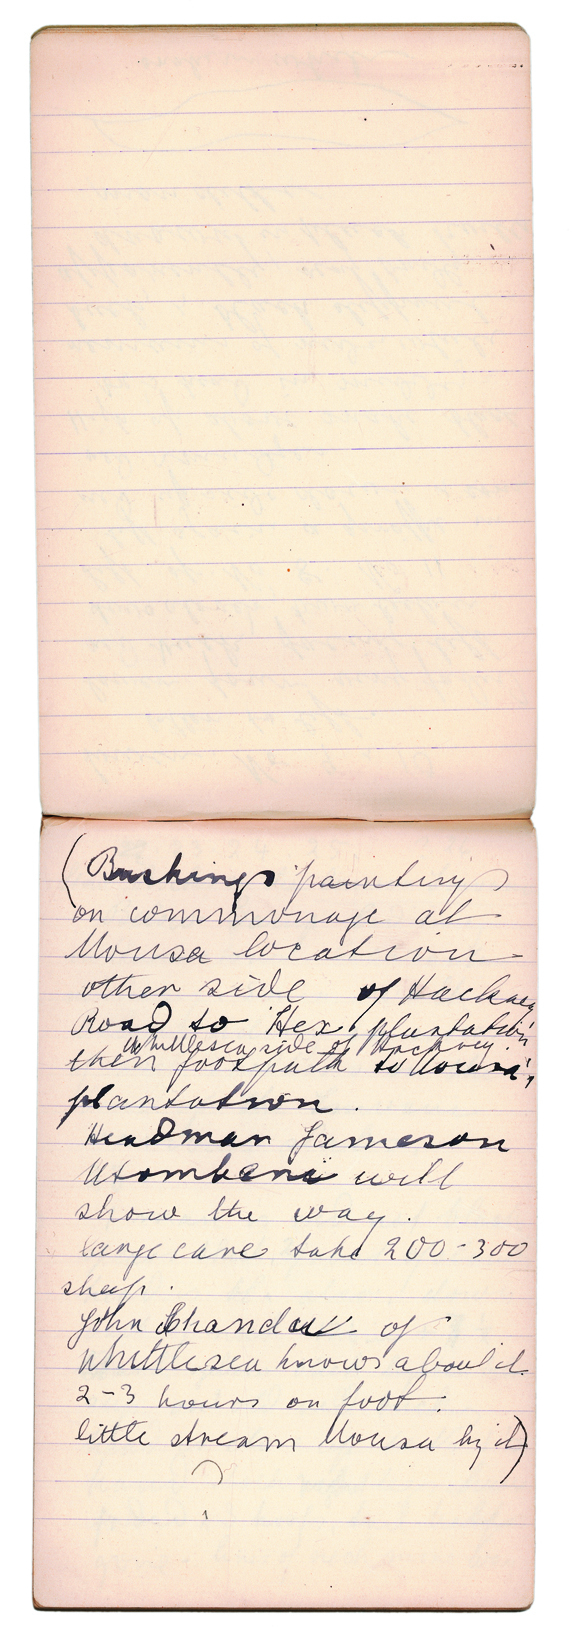 (Bushmen paintings
on commonage at
Mousa location
other side of Hackney
Road to Hex plantation
Whittlesea side of Hackney.
then footpath to Mousa
plantation.
Headman Jameson
will
show the way.
large cave take 200-300
sheep.
John of
Whittlesea knows about it.
2-3 hours on foot.
little stream Mousa by it)
?